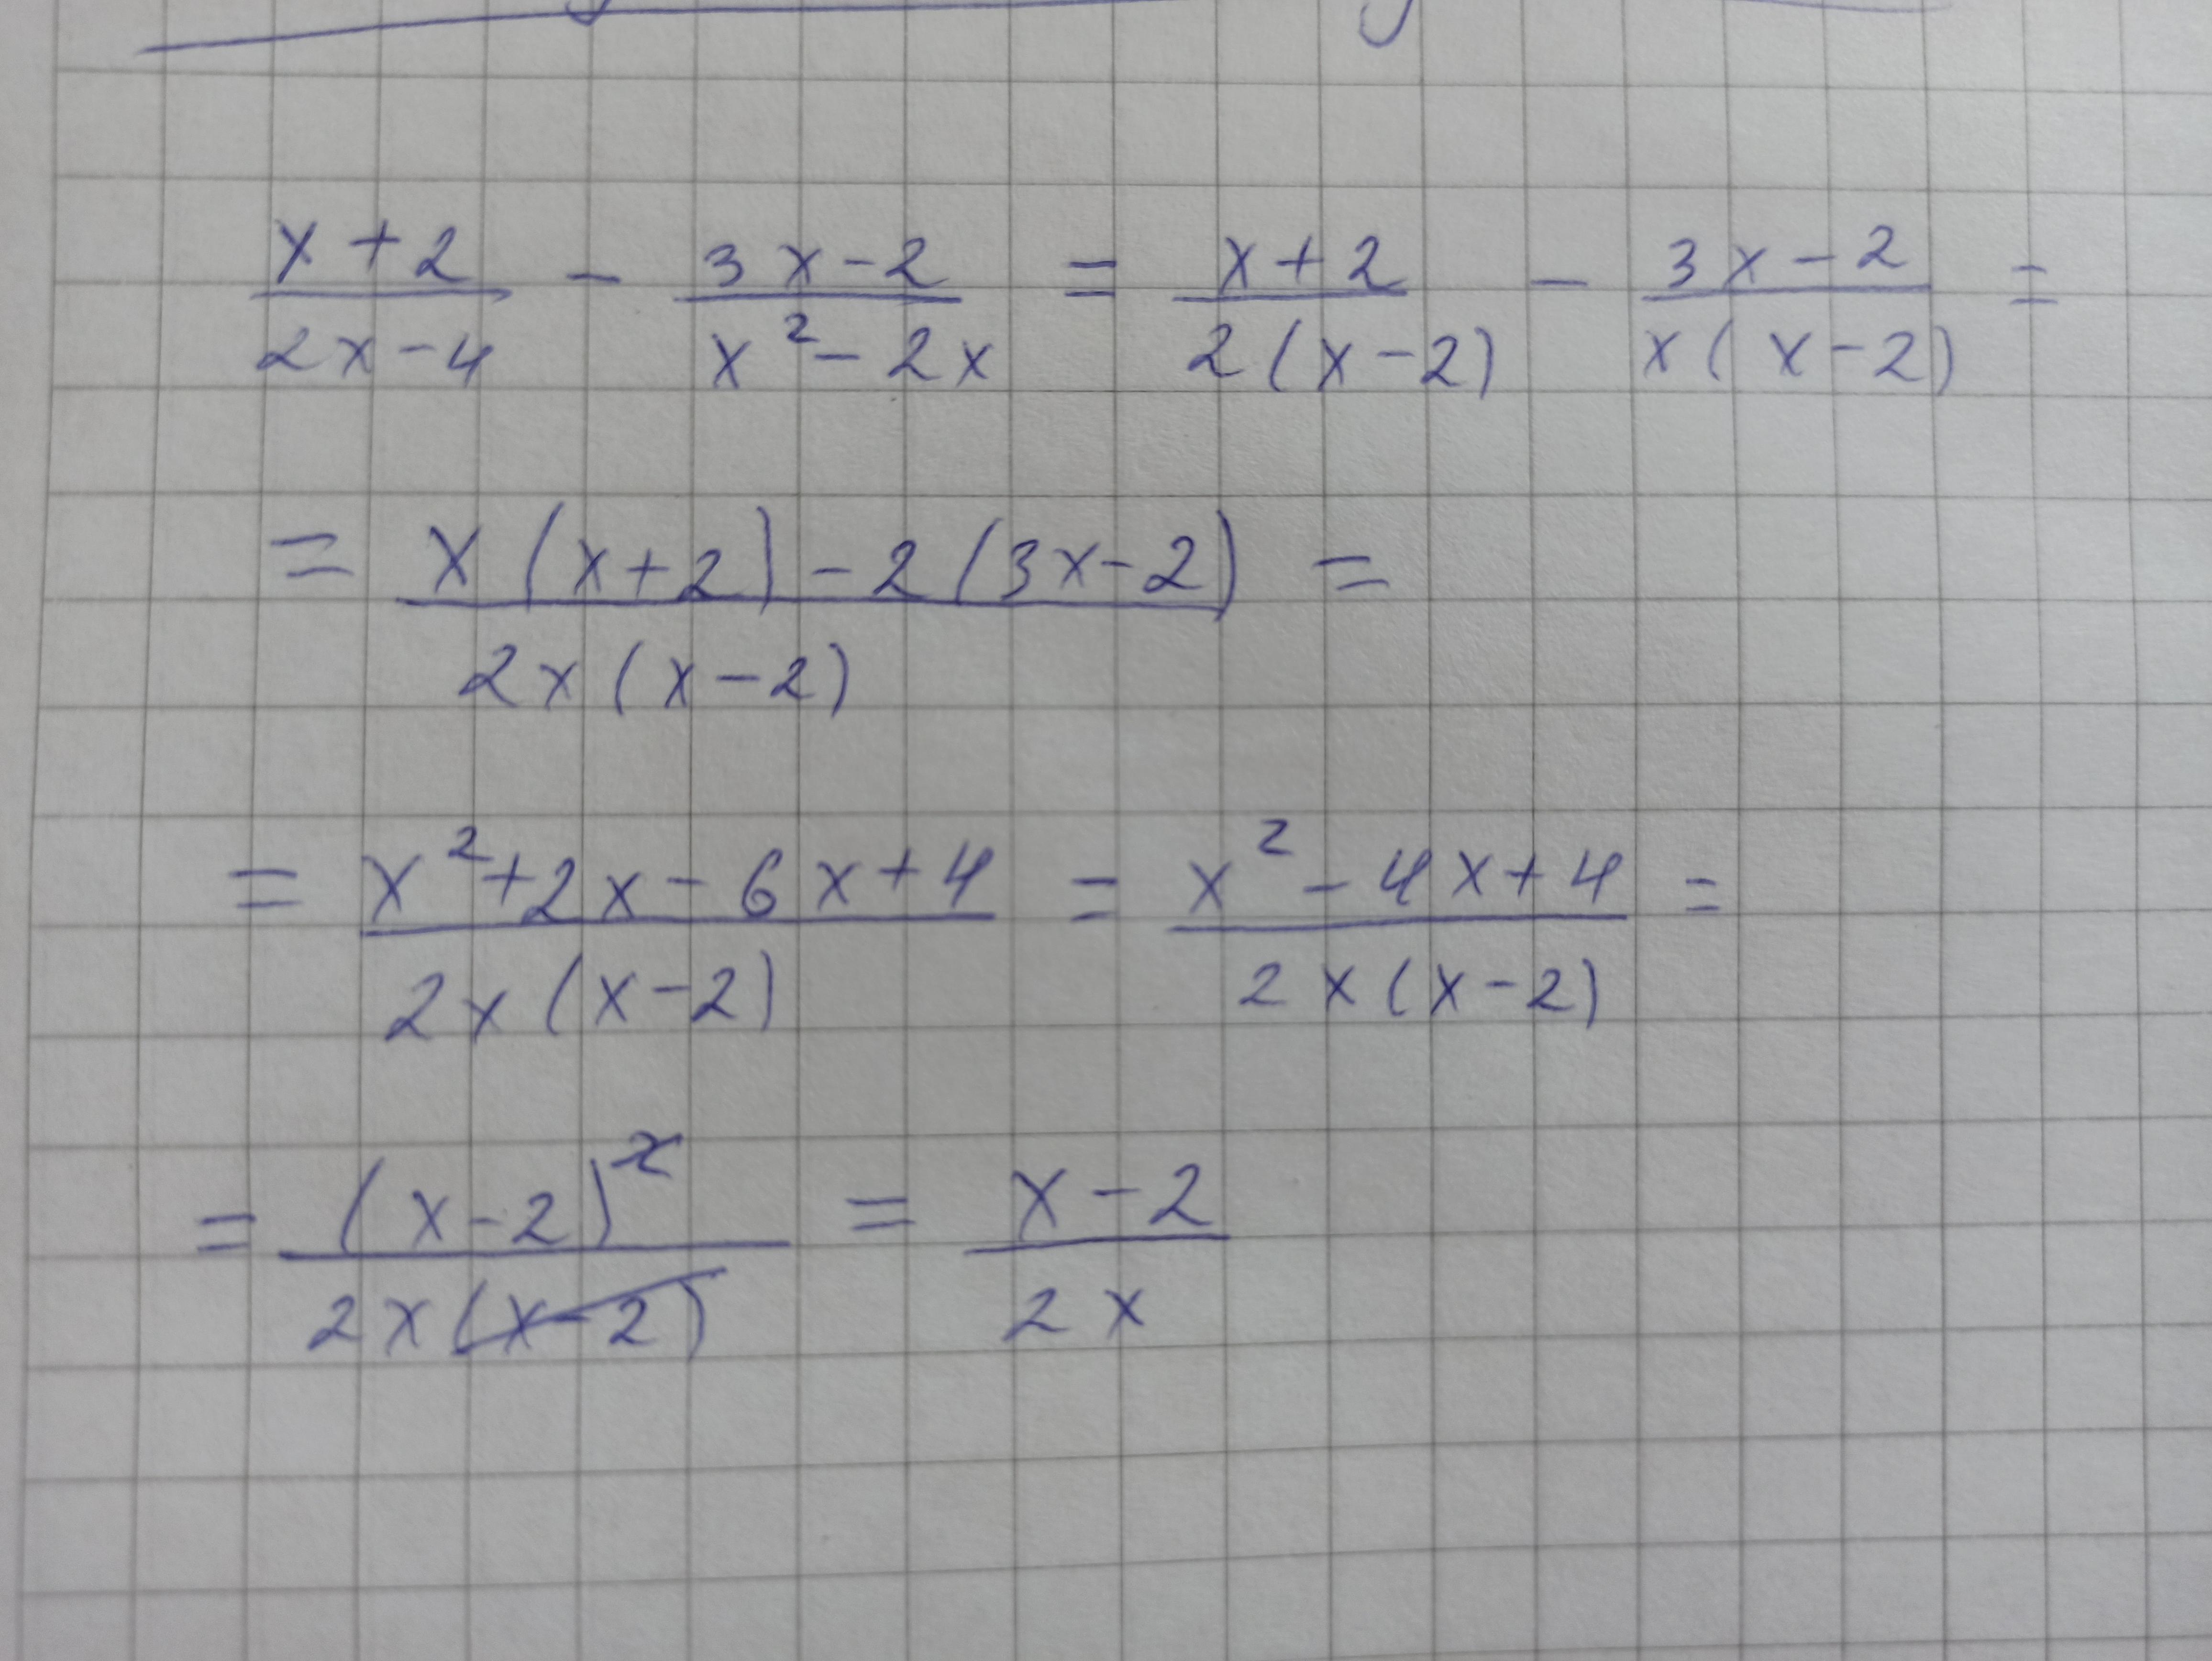 (x+2)/(2x-4) - (3x-2)/(x²-2x) = (x+2)/(2(x-2)) - (3x-2)/(x(x-2)) =
= (x(x+2)-2(3x-2))/(2x(x-2)) =
= (x²+2x-6x+4)/(2x(x-2)) = (x²-4x+4)/(2x(x-2)) =
= (x-2)²/(2x(x-2)) = (x-2)/(2x)